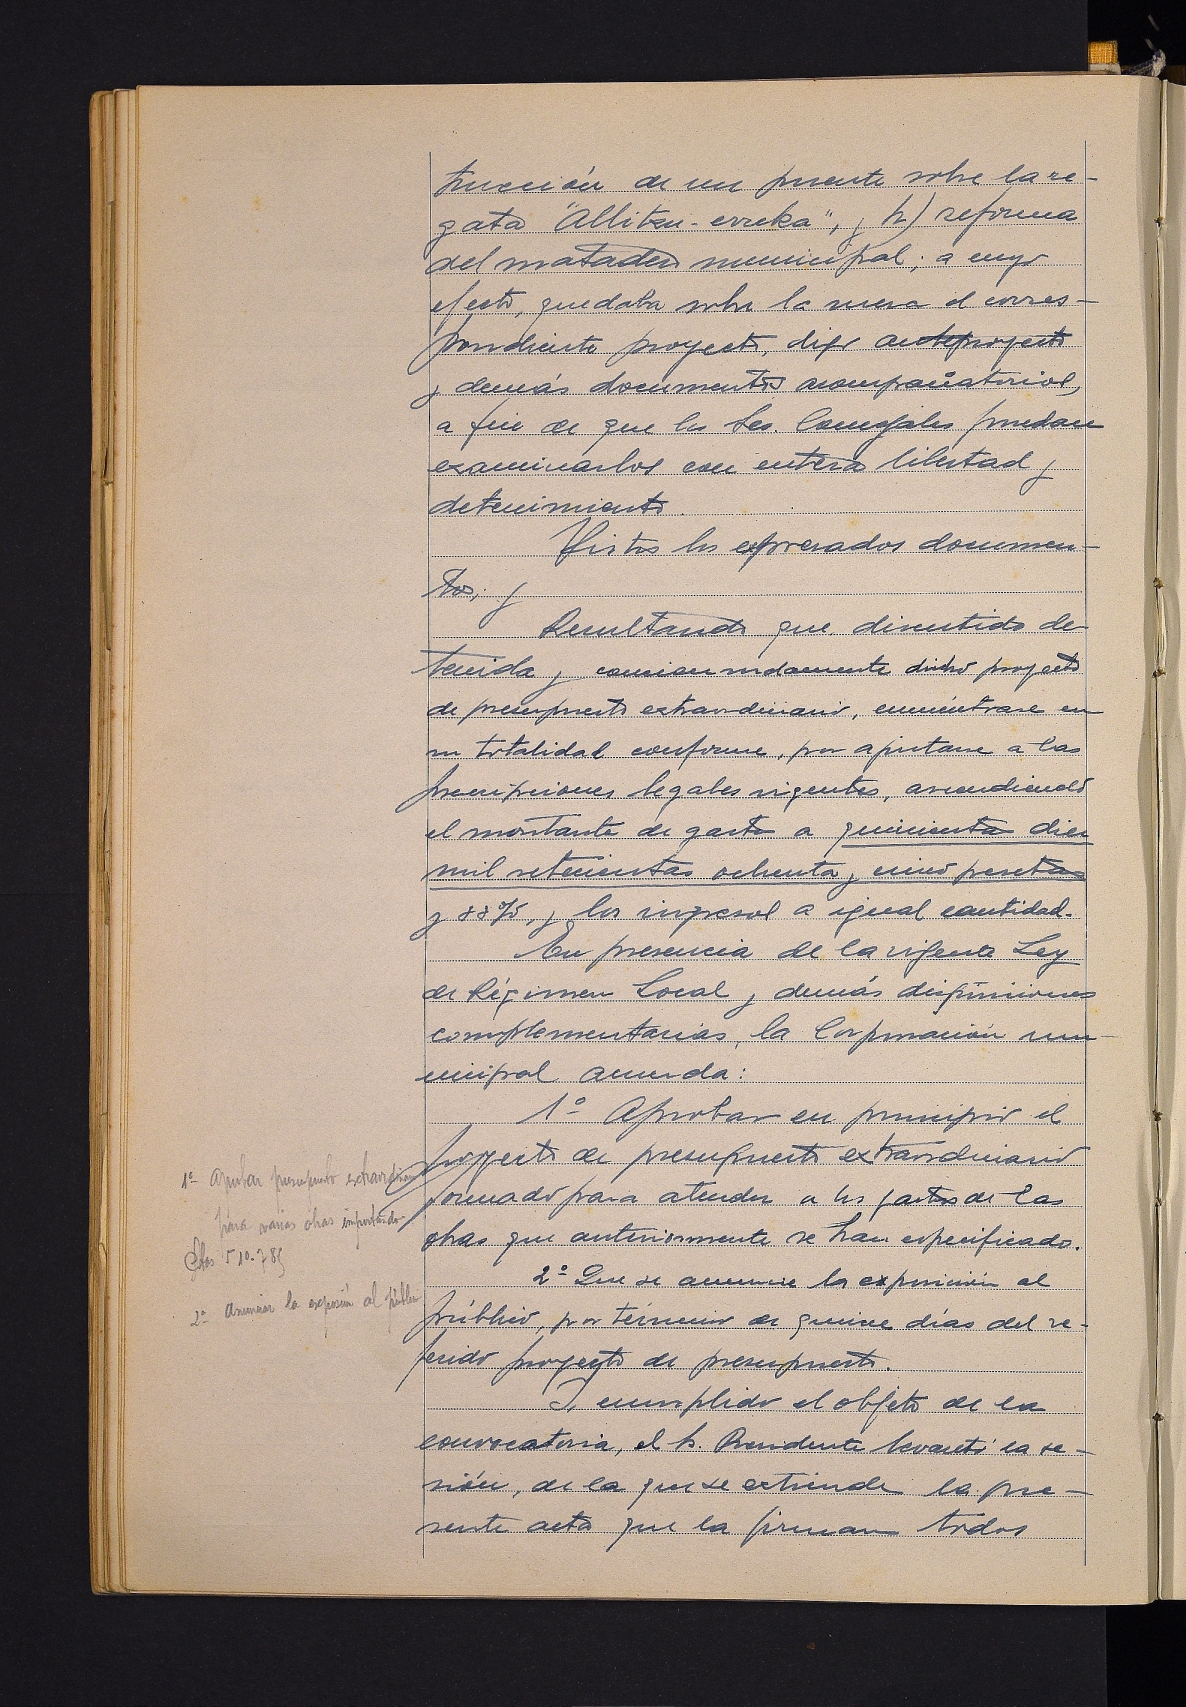 trucción de un puente sobre la re-
gata "Allitzu-erreka", y h) reforma
del matadero municipal; a cuyo
efecto, quedaba sobre la mesa el corres-
pondiente proyecto, digo anteproyecto
y demás documentos acompañatorios,
a fin de que los Sres. Concejales puedan
examinarlos con entera libertad y
detenimiento.
Vistos los expresados documen-
tos; y
Resultando que discutido de-
tenida y concienzudamente dicho proyecto
de presupuesto extraordinario, encuéntrase en
su totalidad conforme, por ajustarse a las
prescripciones legales vigentes, ascendiendo
el montante de gasto a quinientas diez
mil setecientas ochenta y cinco pesetas
y 88%, y los ingresos a igual cantidad.
En presencia de la vigente Ley
de Régimen Local y demás disposiciones
complementarias, la Corporación mu-
nicipal acuerda:
1º Aprobar en principio el
proyecto de presupuesto extraordinario
formado para atender a los gastos de las
obras que anteriormente se han especificado.
2º Que se anuncie la exposición al
público, por término de quince días del re-
ferido proyecto de presupuesto.
Y cumplido el objeto de la
convocatoria, el Sr. Presidente levantó la se-
sión, de la que se extiende la pre-
sente acta que la firman todos
1º Aprobar presupuesto extraordinario
para varias obras importando
Ptas 510.785
2º Anunciar la exposición al público